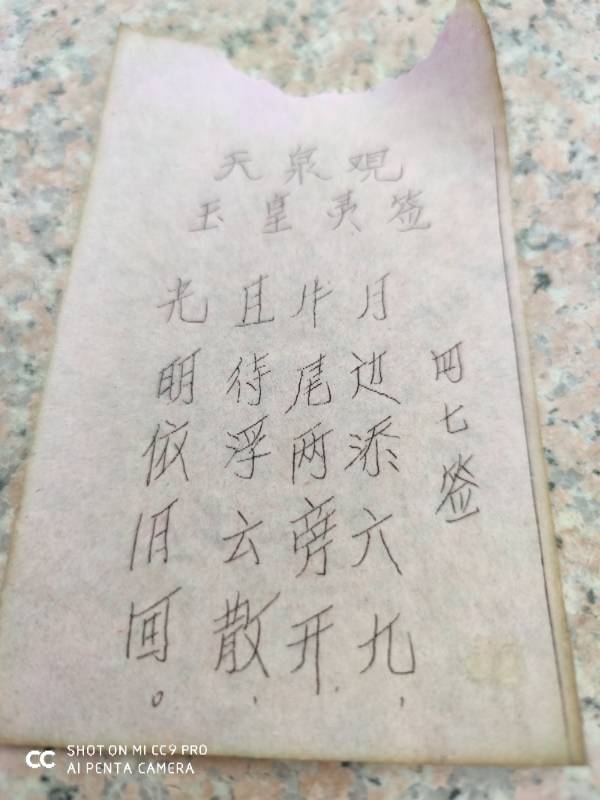 天泉观
玉皇灵签
四七签
月边添六九,
牛尾两旁开,
且待浮云散,
光明依旧回。
SHOT ON MI CC9 PRO
AI PENTA CAMERA